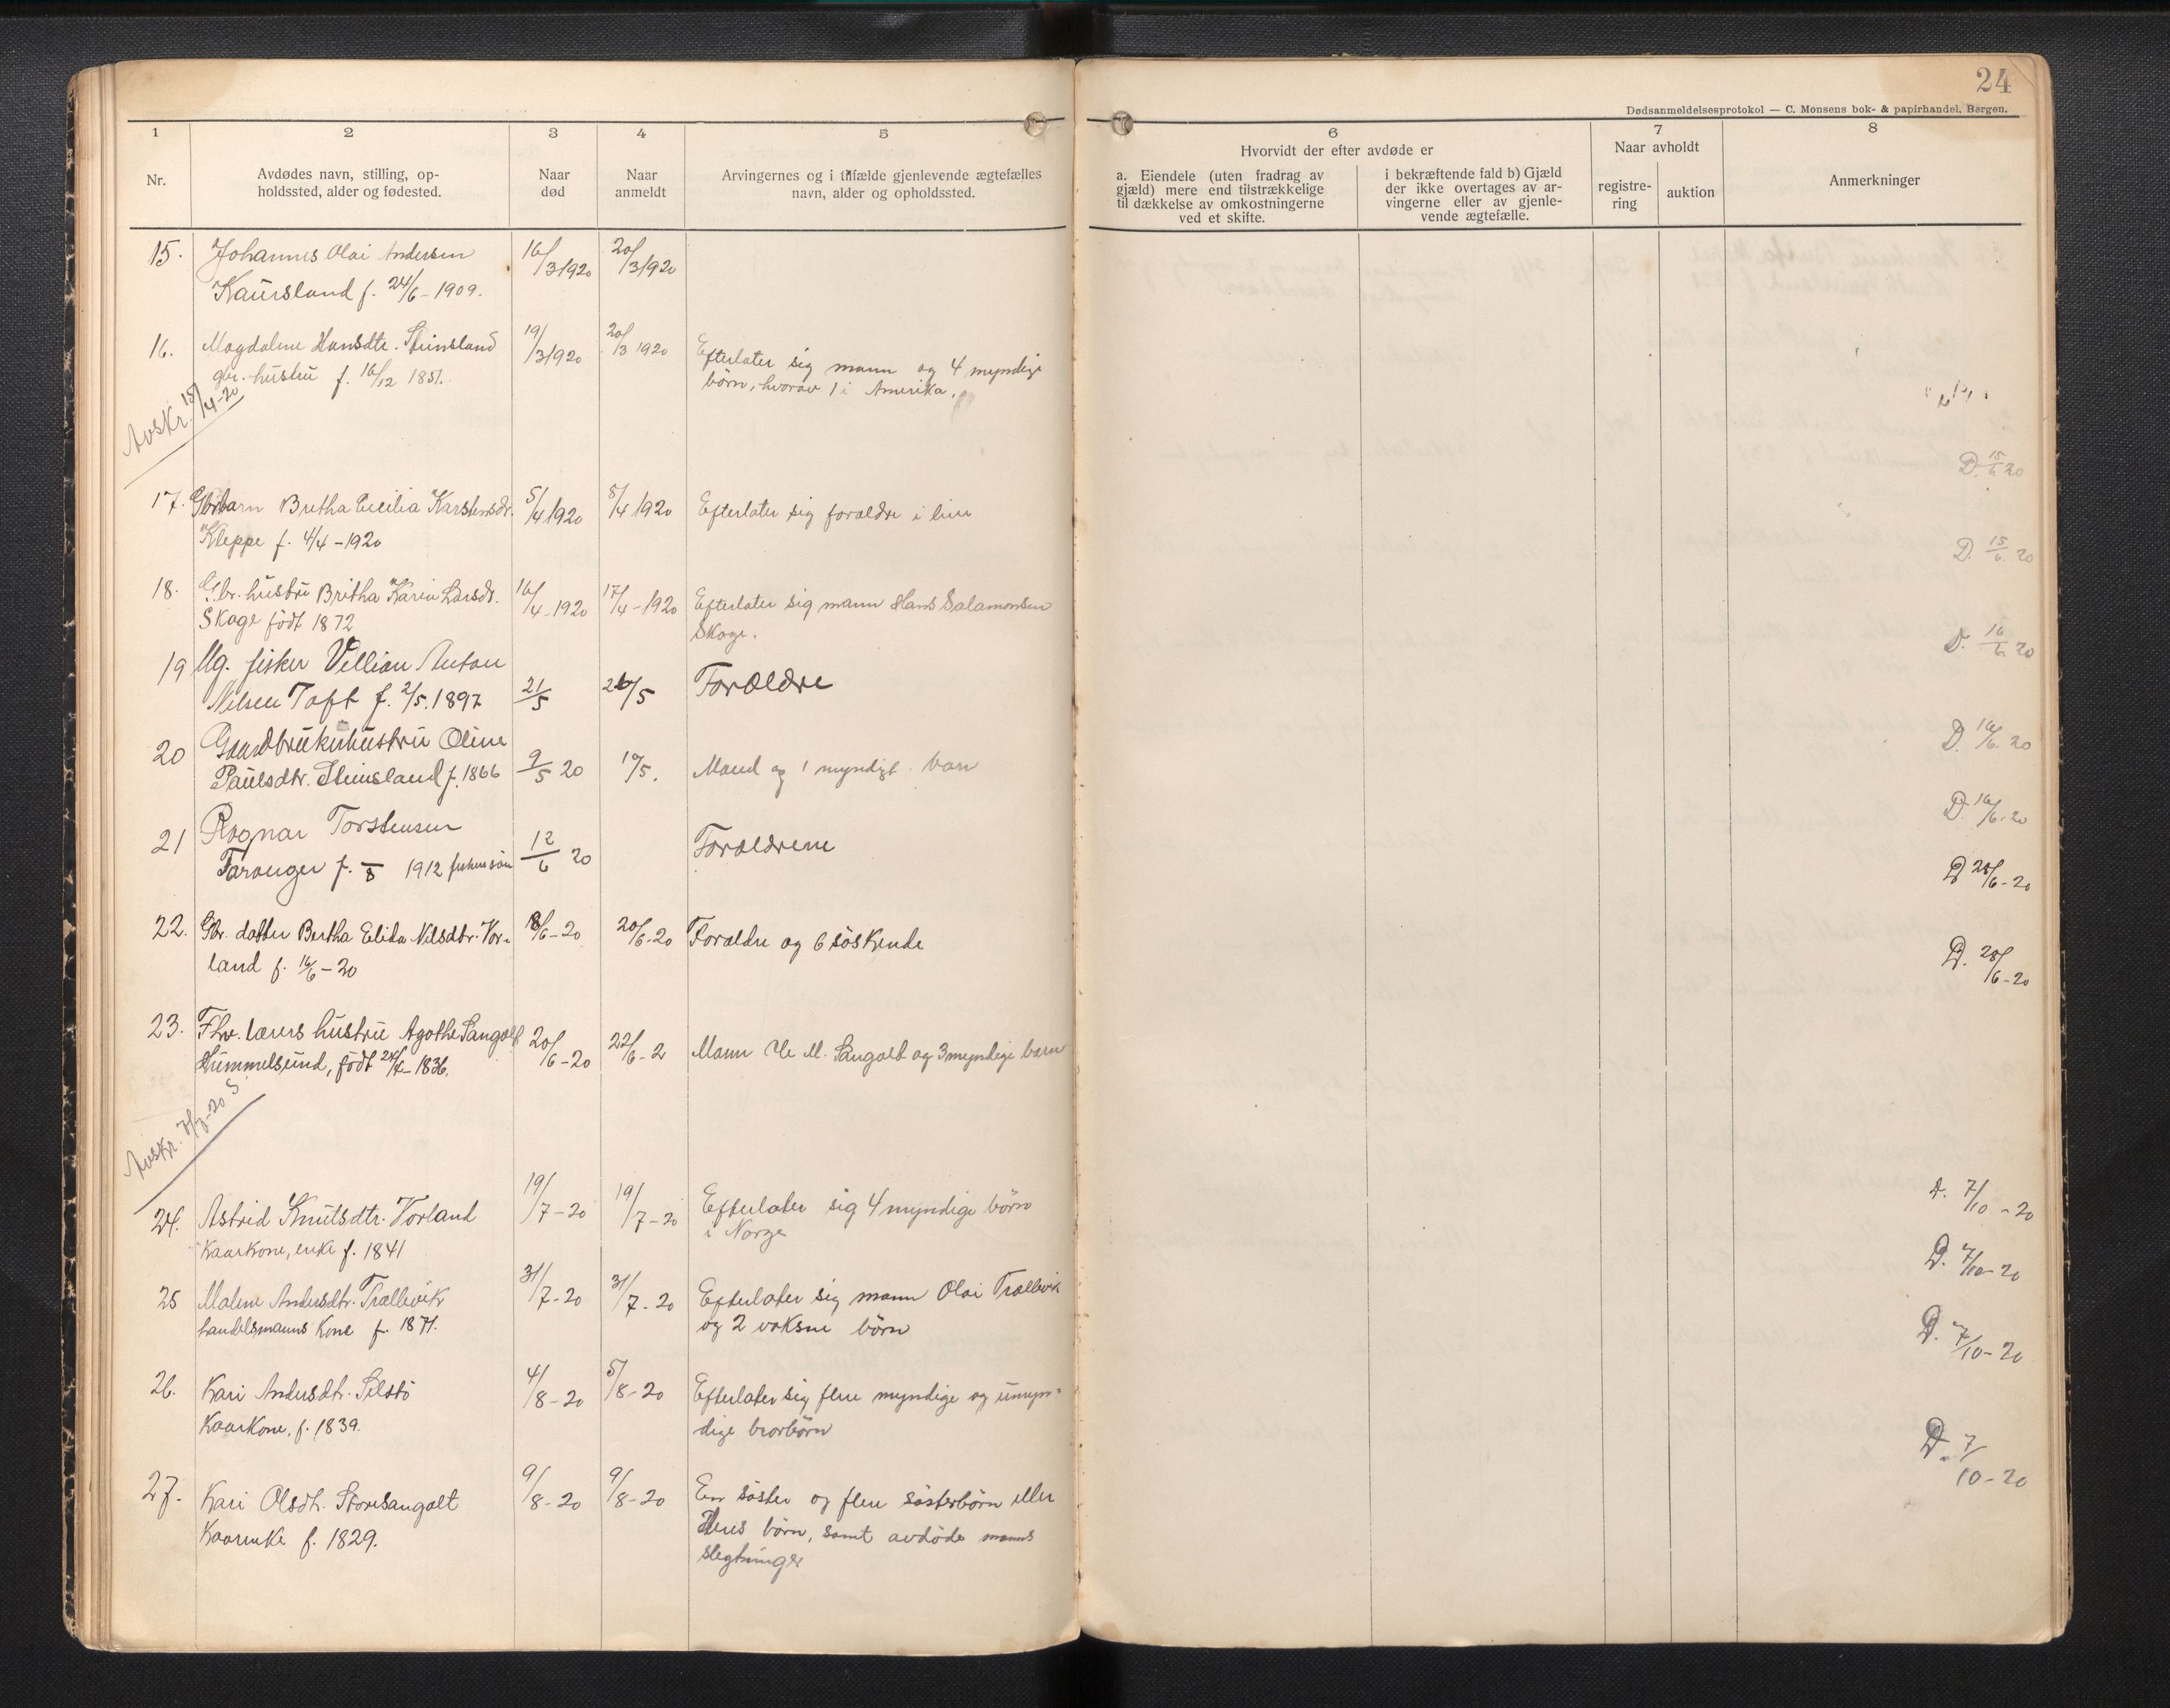 24
Dødsanmeldelsesprotokol — C. Monsens bok- & papirhandel, Bergen.
1 2 3 4 5 6 7 8
Nr.
Avdødes navn, stilling, op-
holdssted, alder og fødested.
Naar
død
Naar
anmeldt
Arvingernes og i tilfælde gjenlevende ægtefælles
navn, alder og opholdssted.
Hvorvidt der efter avdøde er
a. Eiendele (uten fradrag av
gjæld) mere end tilstrækkelige
til dækkelse av omkostningerne
ved et skifte.
i bekræftende fald b) Gjæld
der ikke overtages av ar-
vingerne eller av gjenle-
vende ægtefælle.
Naar avholdt
registre-
ring
auktion
Anmerkninger
15. Johannes Olai Andersen 16/3 1920 20/3 1920
Kaursland f. 24/6 - 1909.
16. Magdalene Hansdtr. Steinsland 19/3 1920 20/3 1920 Efterlater sig mann og 4 myndige
gbr. hustru f. 16/12 1851. børn, hvorav 1 i Amerika.
Avskr. 15/4-20
D. 15/6 20
17. Gbrbarn Bretha Cecilia Karstensdr. 5/4 1920 8/4 1920 Efterlater sig forældre i live
Kleppe f. 4/4 - 1920
D. 15/6 20
18. Gbr. hustru Britha Karin Larsdr. 16/4 - 1920 17/4 - 1920 Efterlater sig mann Hans Salamonsen
Skage født 1872 Skage.
D. 16/6 20
19 Ug. fisker Villian Anton
Nilsen Toft f. 2/5. 1897 21/5 26/5 Forældre
D. 16/6 20
20 Gaardbrukerhustru Oline
Paulsdtr. Steinsland f. 1866 9/5 20 10/5. Mand og 1 myndigt barn
D. 16/6-20
21 Ragnar Torstensen
Taranger f. 8 1912 12/6 20 Forældrene
D 28/6-20
22. Gbr. datter Bertha Elida Nilsdtr. Vor- 18/6-20 20/6-20 Forældre og 6 søskende
land f. 16/6-20
D. 28/6-20
23. Fhv. lærers hustru Agathe Sangolt 20/6-20 22/6-2 Mann M. Sangolt og 3 myndige barn
Hummelsund, født 1836.
Avskr. 7/7-20 S
24. Astrid Knutsdtr. Vorland 19/7-20 19/7-20 Efterlater sig 4 myndige børn
Kaarkone, enke f. 1841 i Norge
D. 7/10-20
25 Malene Andersdtr. Trællevik 31/7-20 31/7-20 Efterlater sig mann Olai Trællevik
handelsmanns Kone f. 1871. og 2 voksne børn
D. 7/10-20
26. Kari Andersdtr. Selstø 4/8-20 5/8-20 Efterlater sig flere myndige og umyn-
Kaarkone, f. 1839. dige brorbørn
D. 7/10-20
27. Kari Olsdtr. Storesangolt 9/8-20 9/8-20 En søster og flere søsterbørn eller
Kaarenke f. 1829. deres børn, samt avdøde manns
slegtninger
D. 7/10-20